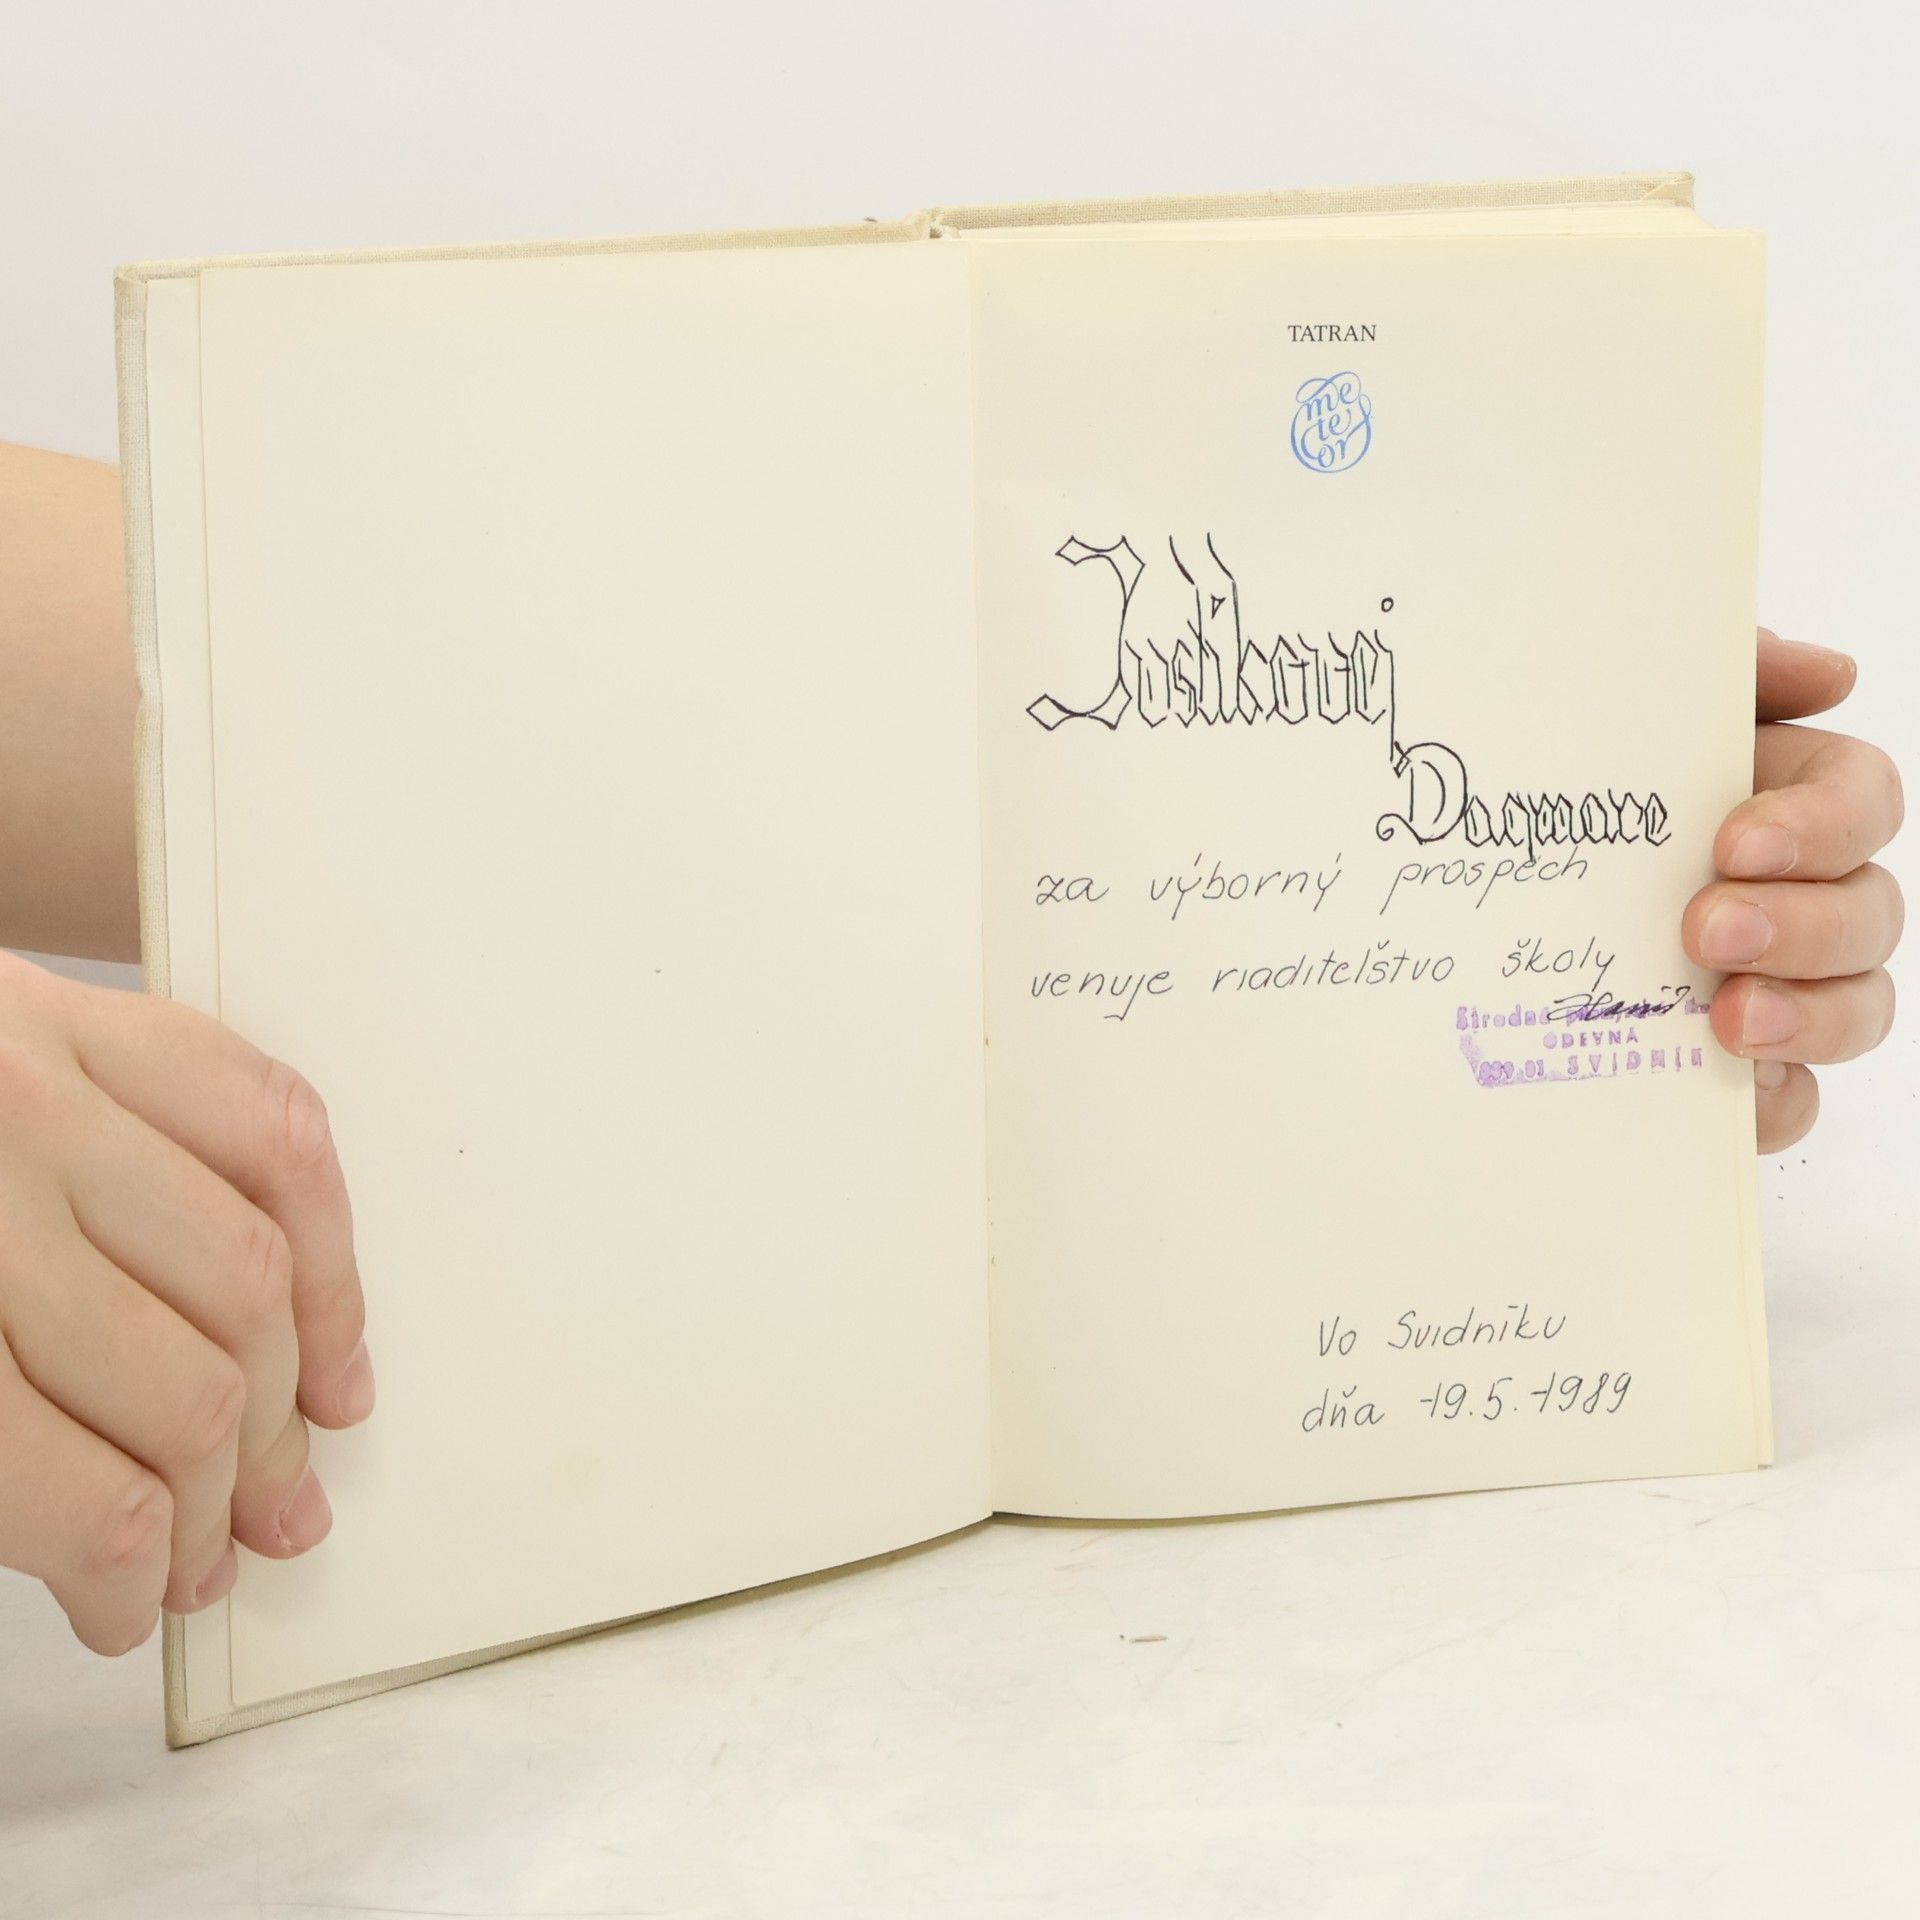 TATRAN
me
te
or
Dagmare
za výborný prospech
venuje riaditeľstvo školy
Stredná
ODEVNÁ
089 01 SVIDNÍK
Vo Svidníku
dňa 19.5.1989